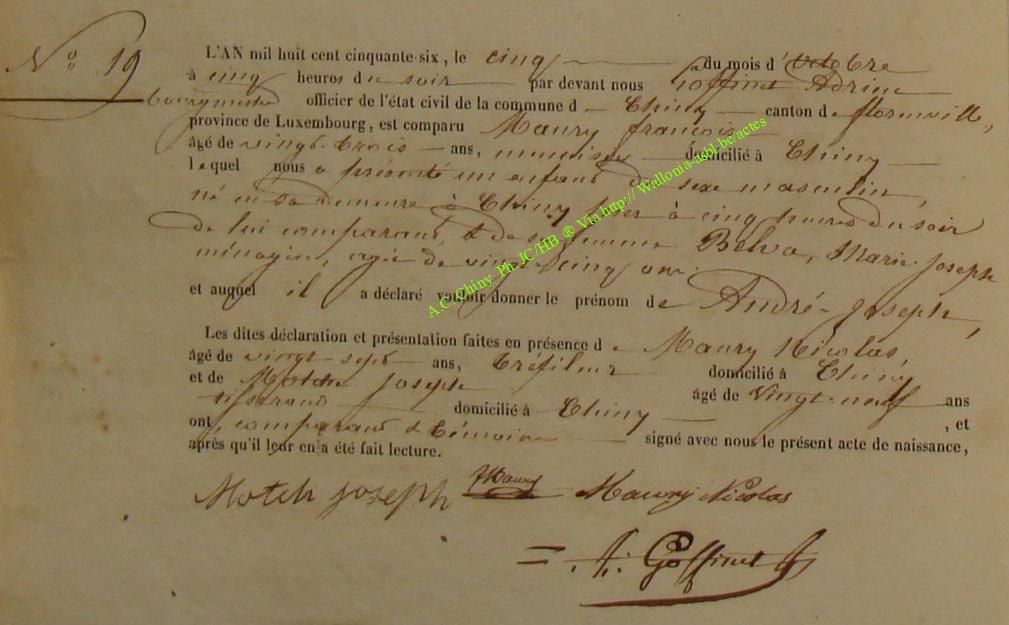 N° 19
L'AN mil huit cent cinquante-six, le cinq du mois d'Octobre
à cinq heures du soir par devant nous Goffinet Adrien
bourgmestre officier de l'état civil de la commune de Chiny canton de florenville,
province de Luxembourg, est comparu Maury françois
âgé de vingt-trois ans, menuisier domicilié à Chiny
lequel nous a présenté un enfant du sexe masculin,
né en sa demeure à Chiny hier à cinq heures du soir
de lui comparant, & de sa femme Belva, Marie-Joseph
ménagère, agée de vingt-cinq ans.
et auquel il a déclaré vouloir donner le prénom de André-Joseph,
Les dites déclaration et présentation faites en présence de Maury Nicolas,
âgé de vingt-sept ans, tréfileur domicilié à Chiny
et de Motch Joseph âgé de vingt-neuf ans
tisserand domicilié à Chiny , et
ont comparant & témoins signé avec nous le présent acte de naissance,
après qu'il leur en a été fait lecture.
Motch joseph fMaury Maury Nicolas
A. Goffinet
A.C. Chiny_Ph_JC/HB ® Via http://Wallonia-asbl.be/actes